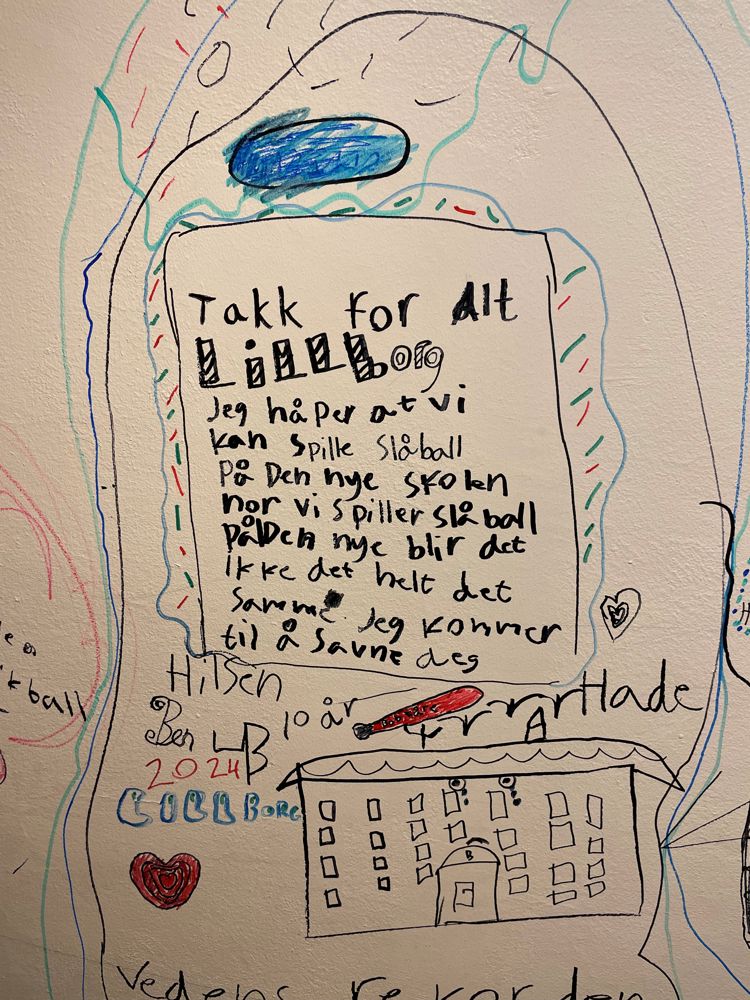 Takk for Alt
LiLLLborg
Jeg håper at vi
kan spille slåball
på Den nye skolen
nor vi spiller slåball
påDen nye blir det
ikke det helt det
samme. Jeg kommer
til å savne deg
Hilsen
Ben LB 10 år
Hade
2024
LILLBorg
B
k ball
Vedens rekorden